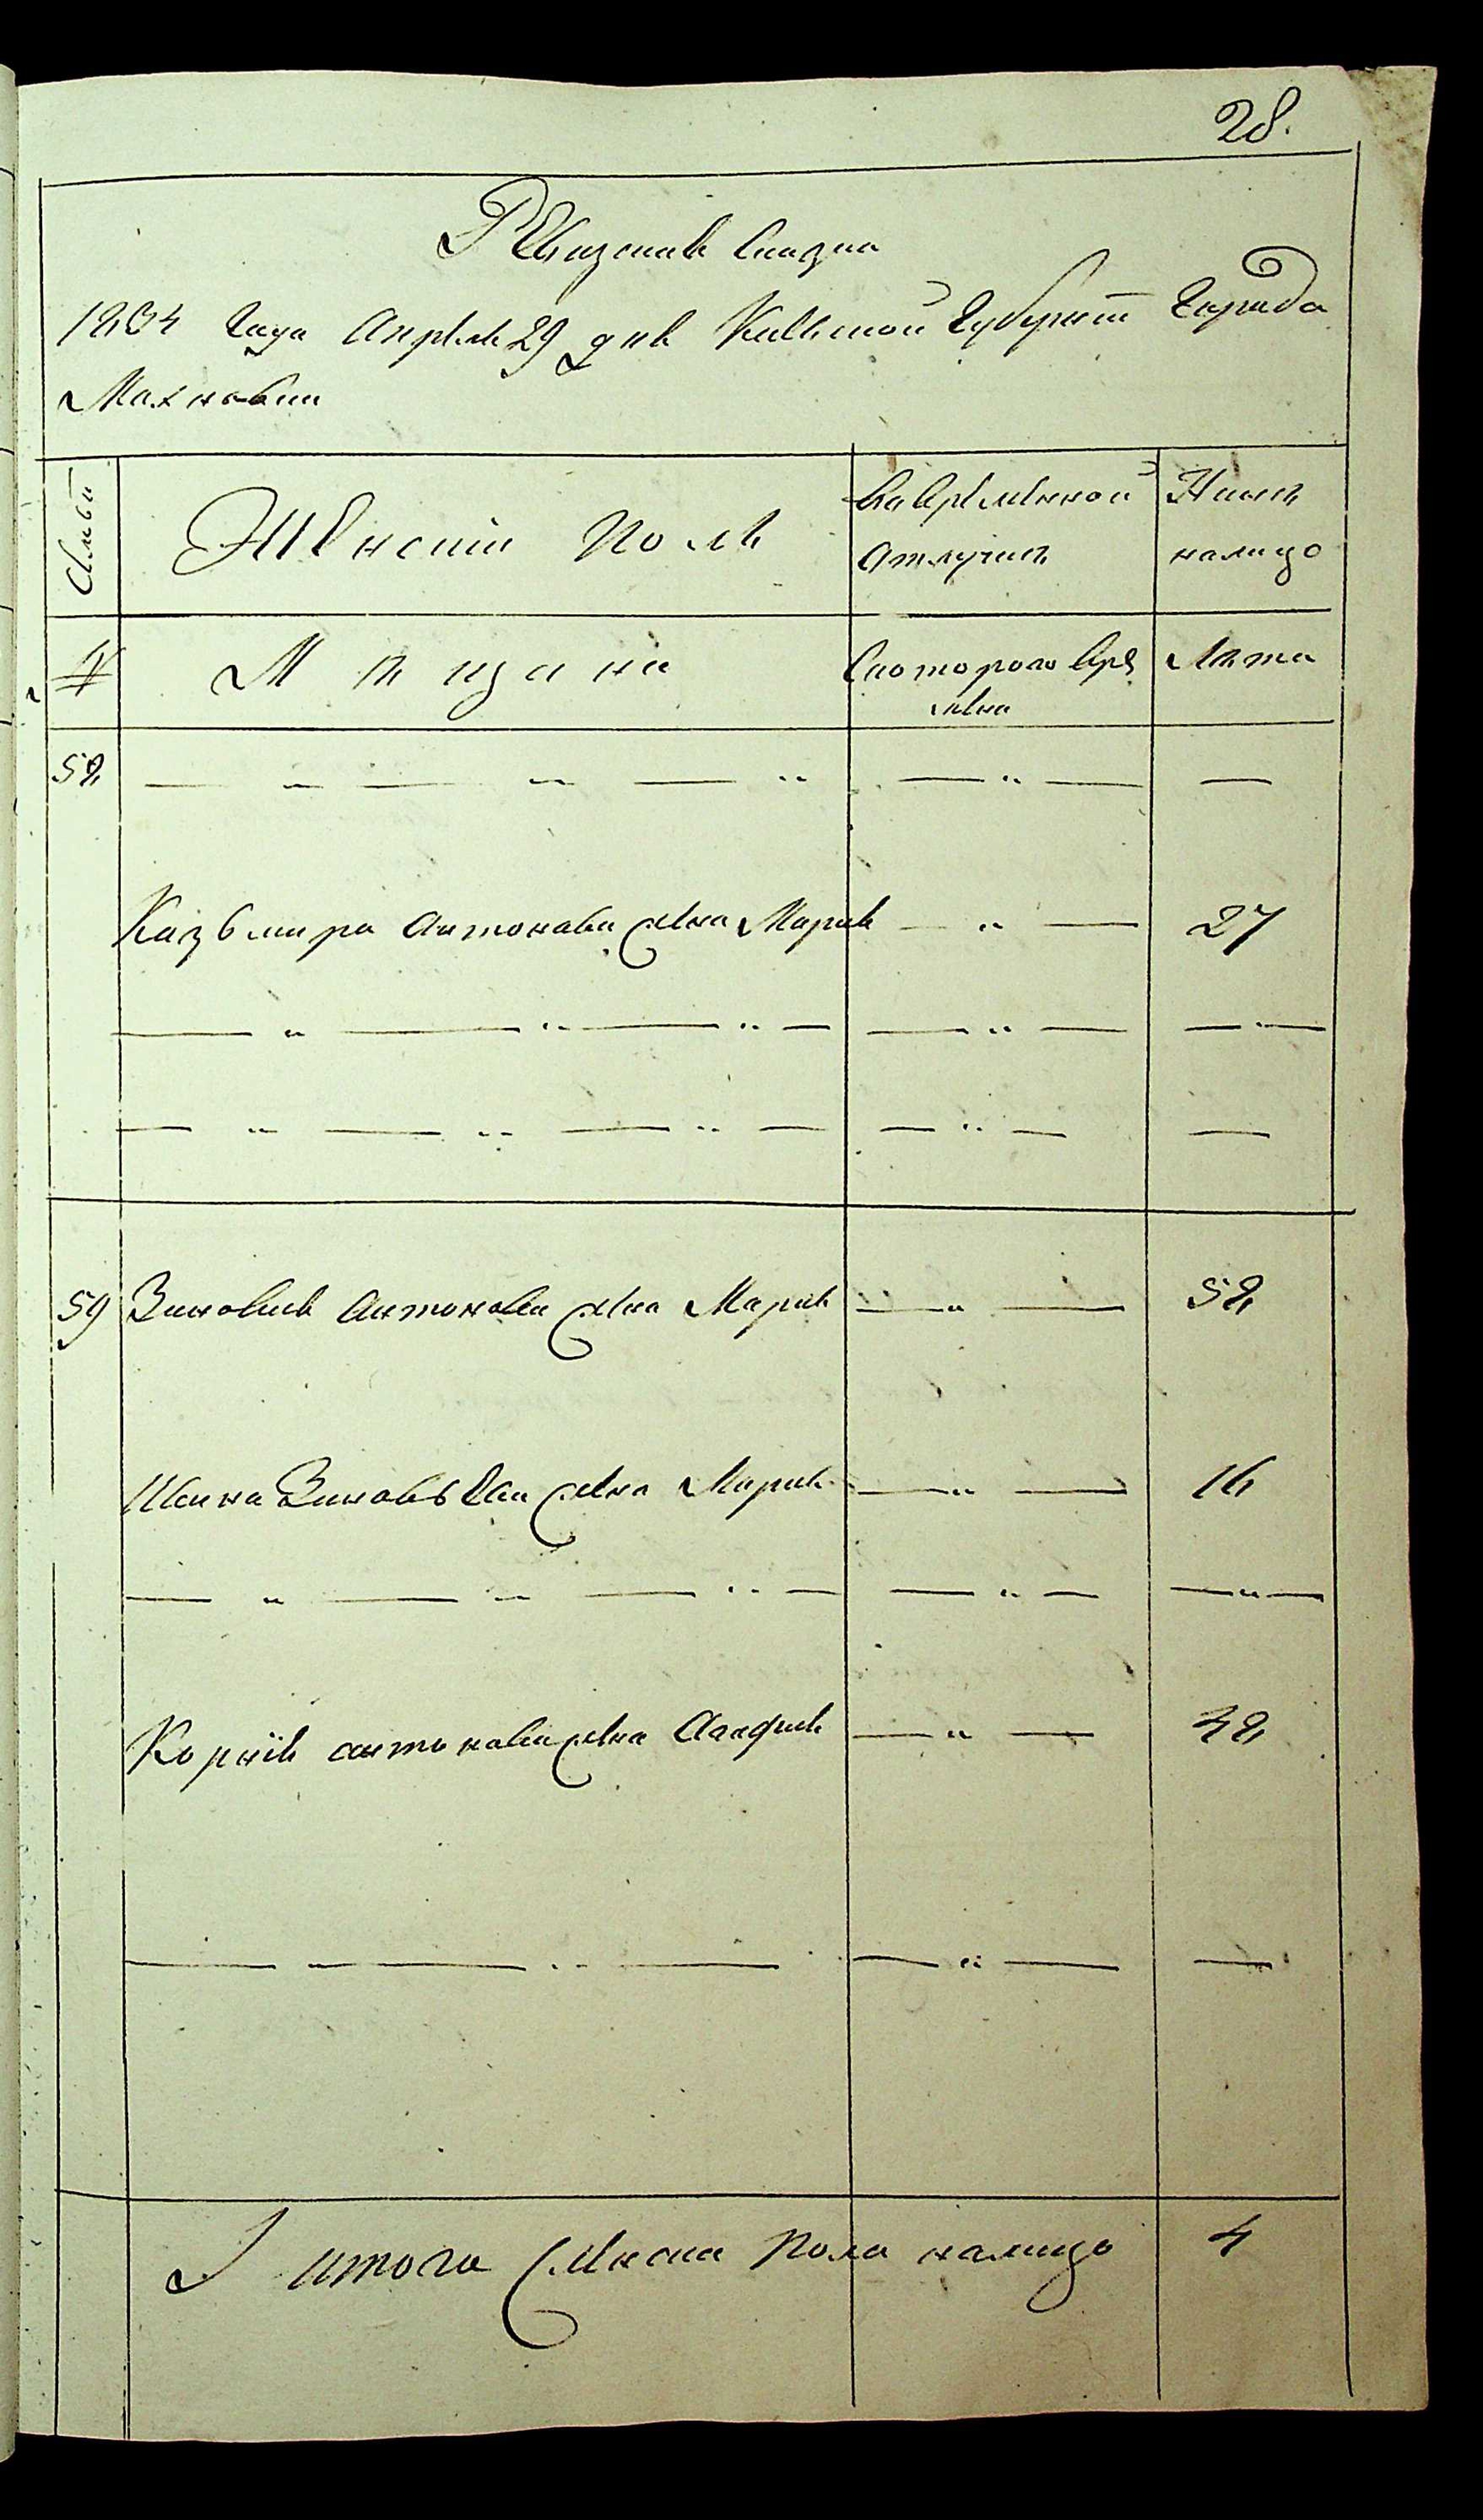 28.
Ревизская Сказка
1834 Года Апреля 29 дня Киевской Губернии Города
Махновки
Семьи
Женский Поль
Во временной
Отлучке
Ныне
налицо
№
Мѣщане
С котораго вре
мени
Лѣта
58
Казьмира Антонова жена Марья 27
59 Зиновия Антонова жена Мария 58
Ивана Зиновьева жена Мария 16
Корнія Антонова жена Агафия 48
И итого женска Пола налицо 4